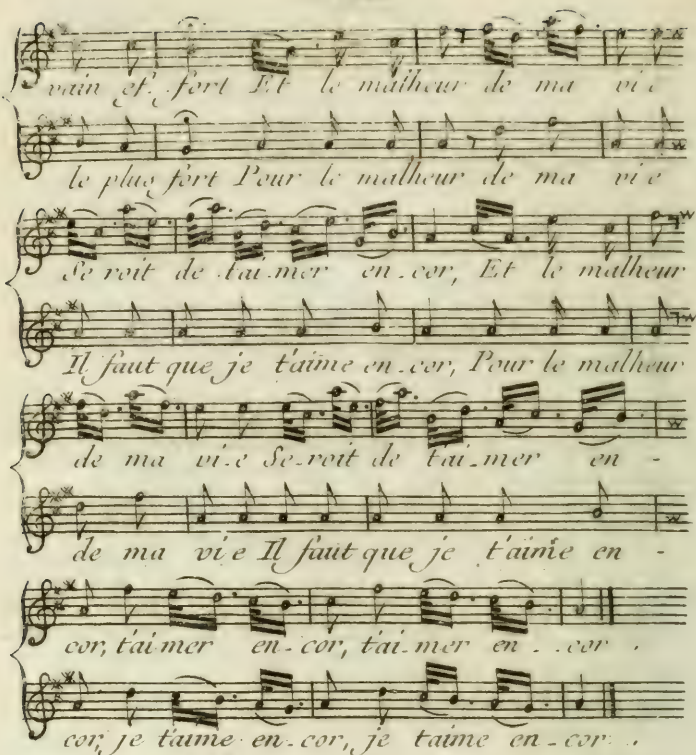 vain ef, fort Et le malheur de ma vi e
le plus fort Pour le malheur de ma vi e
Se roit de t'ai.mer en.cor, Et le malheur
Il faut que je t'aime en-cor, Pour le malheur
de ma vi.e Se.roit de t'ai.mer en -
de ma vi e Il faut que je t'aime en -
cor, t'ai.mer en-cor, t'ai.mer en - . cor .
cor, je t'aime en-cor, je t'aime en-cor .